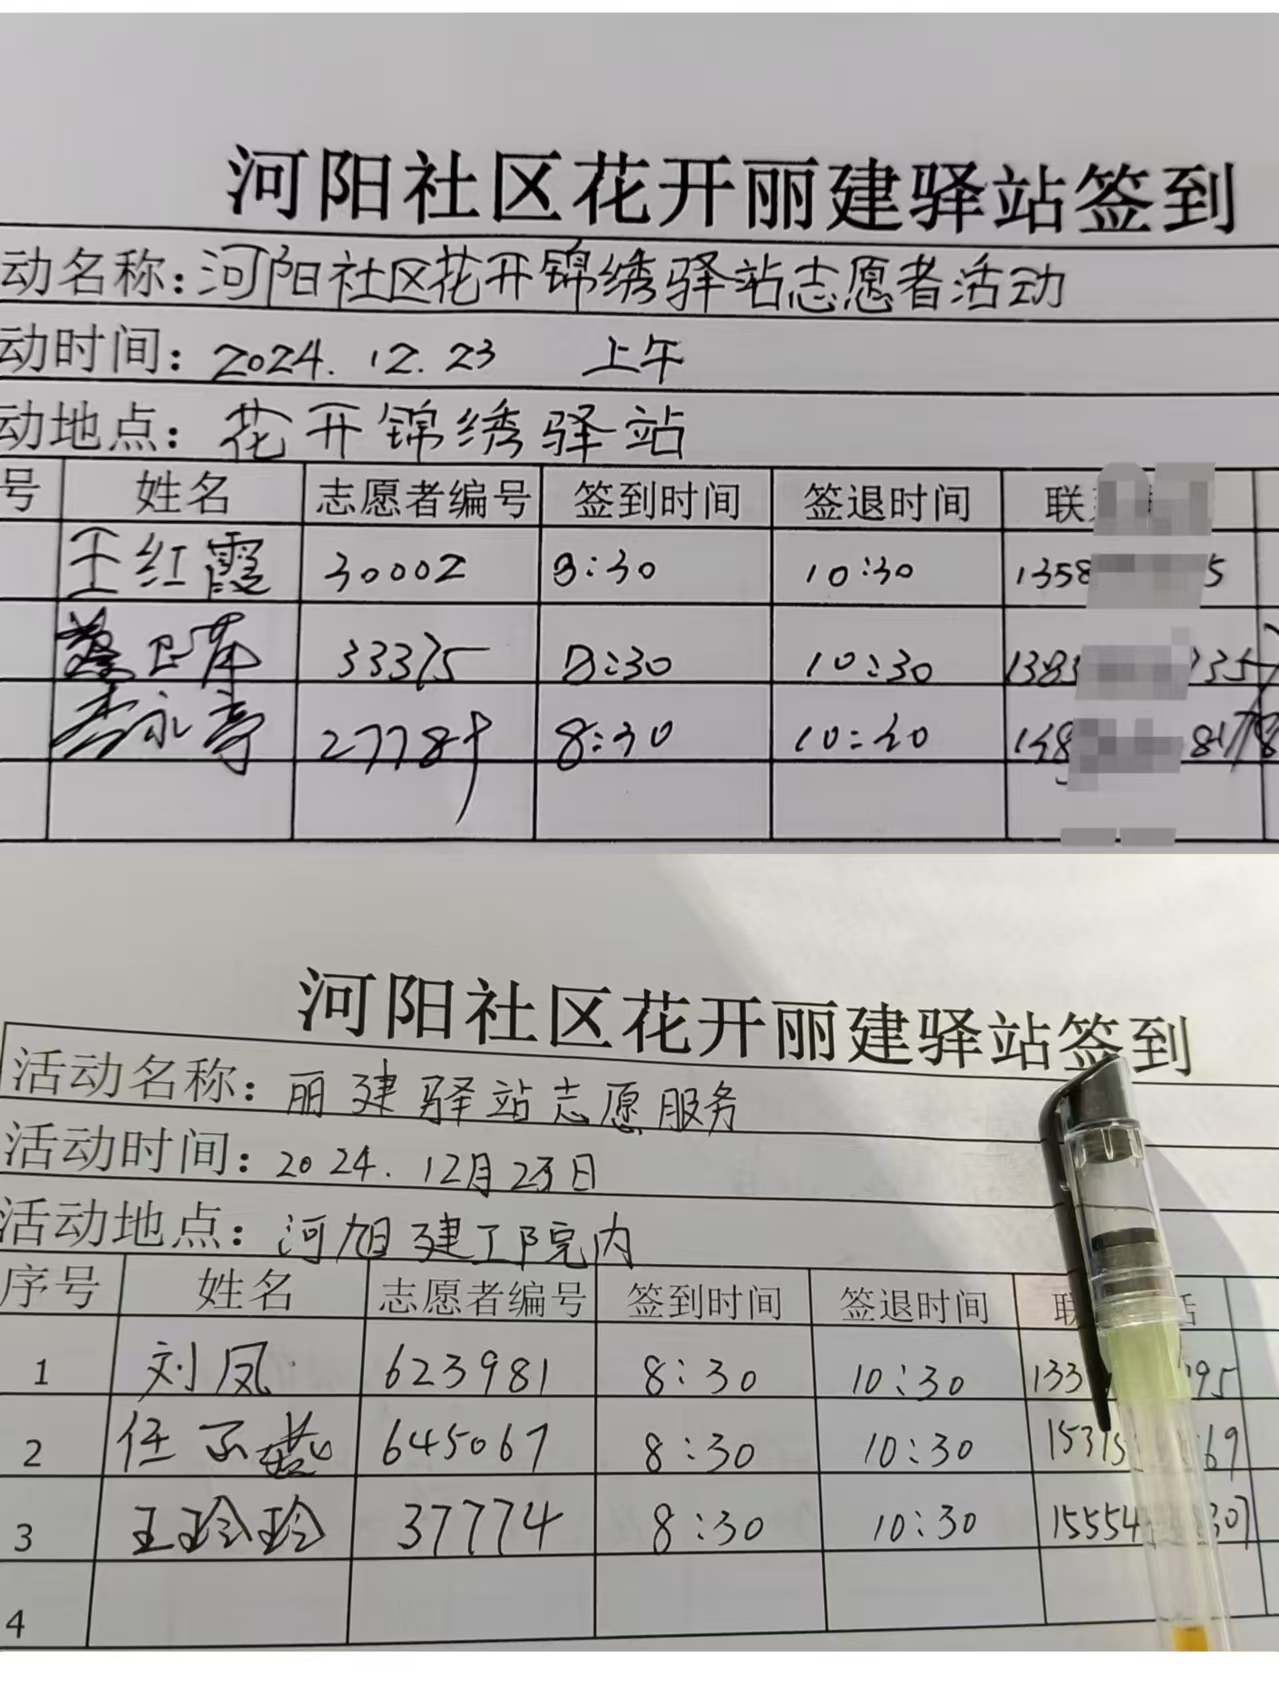 河阳社区花开丽建驿站签到
动名称：河阳社区花开锦绣驿站志愿者活动
动时间：2024.12.23 上午
动地点：花开锦绣驿站
号 姓名 志愿者编号 签到时间 签退时间 联
王红霞 30002 8:30 10:30 1358 5
33375 8:30 10:30 1383 35
永亭 8:30 10:30
河阳社区花开丽建驿站签到
活动名称：丽建驿站志愿服务
活动时间：2024.12月23日
活动地点：河旭建工院内
序号 姓名 志愿者编号 签到时间 签退时间 联 话
1 刘凤 623981 8:30 10:30 133 95
2 任 645067 8:30 10:30 15315 69
3 王玲玲 37774 8:30 10:30 15554 307
4